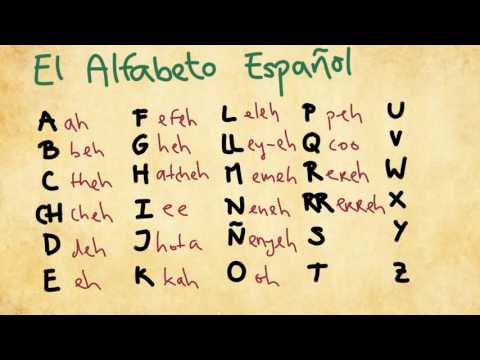 El Alfabeto Español
A ah
B beh
C theh
CH cheh
D deh
E eh
F efeh
G heh
H atcheh
I ee
J hota
K kah
L eleh
LL ey-eh
M emeh
N eneh
Ñ enyeh
O oh
P peh
Q coo
R ereh
RR erreh
S
T
U
V
W
X
Y
Z